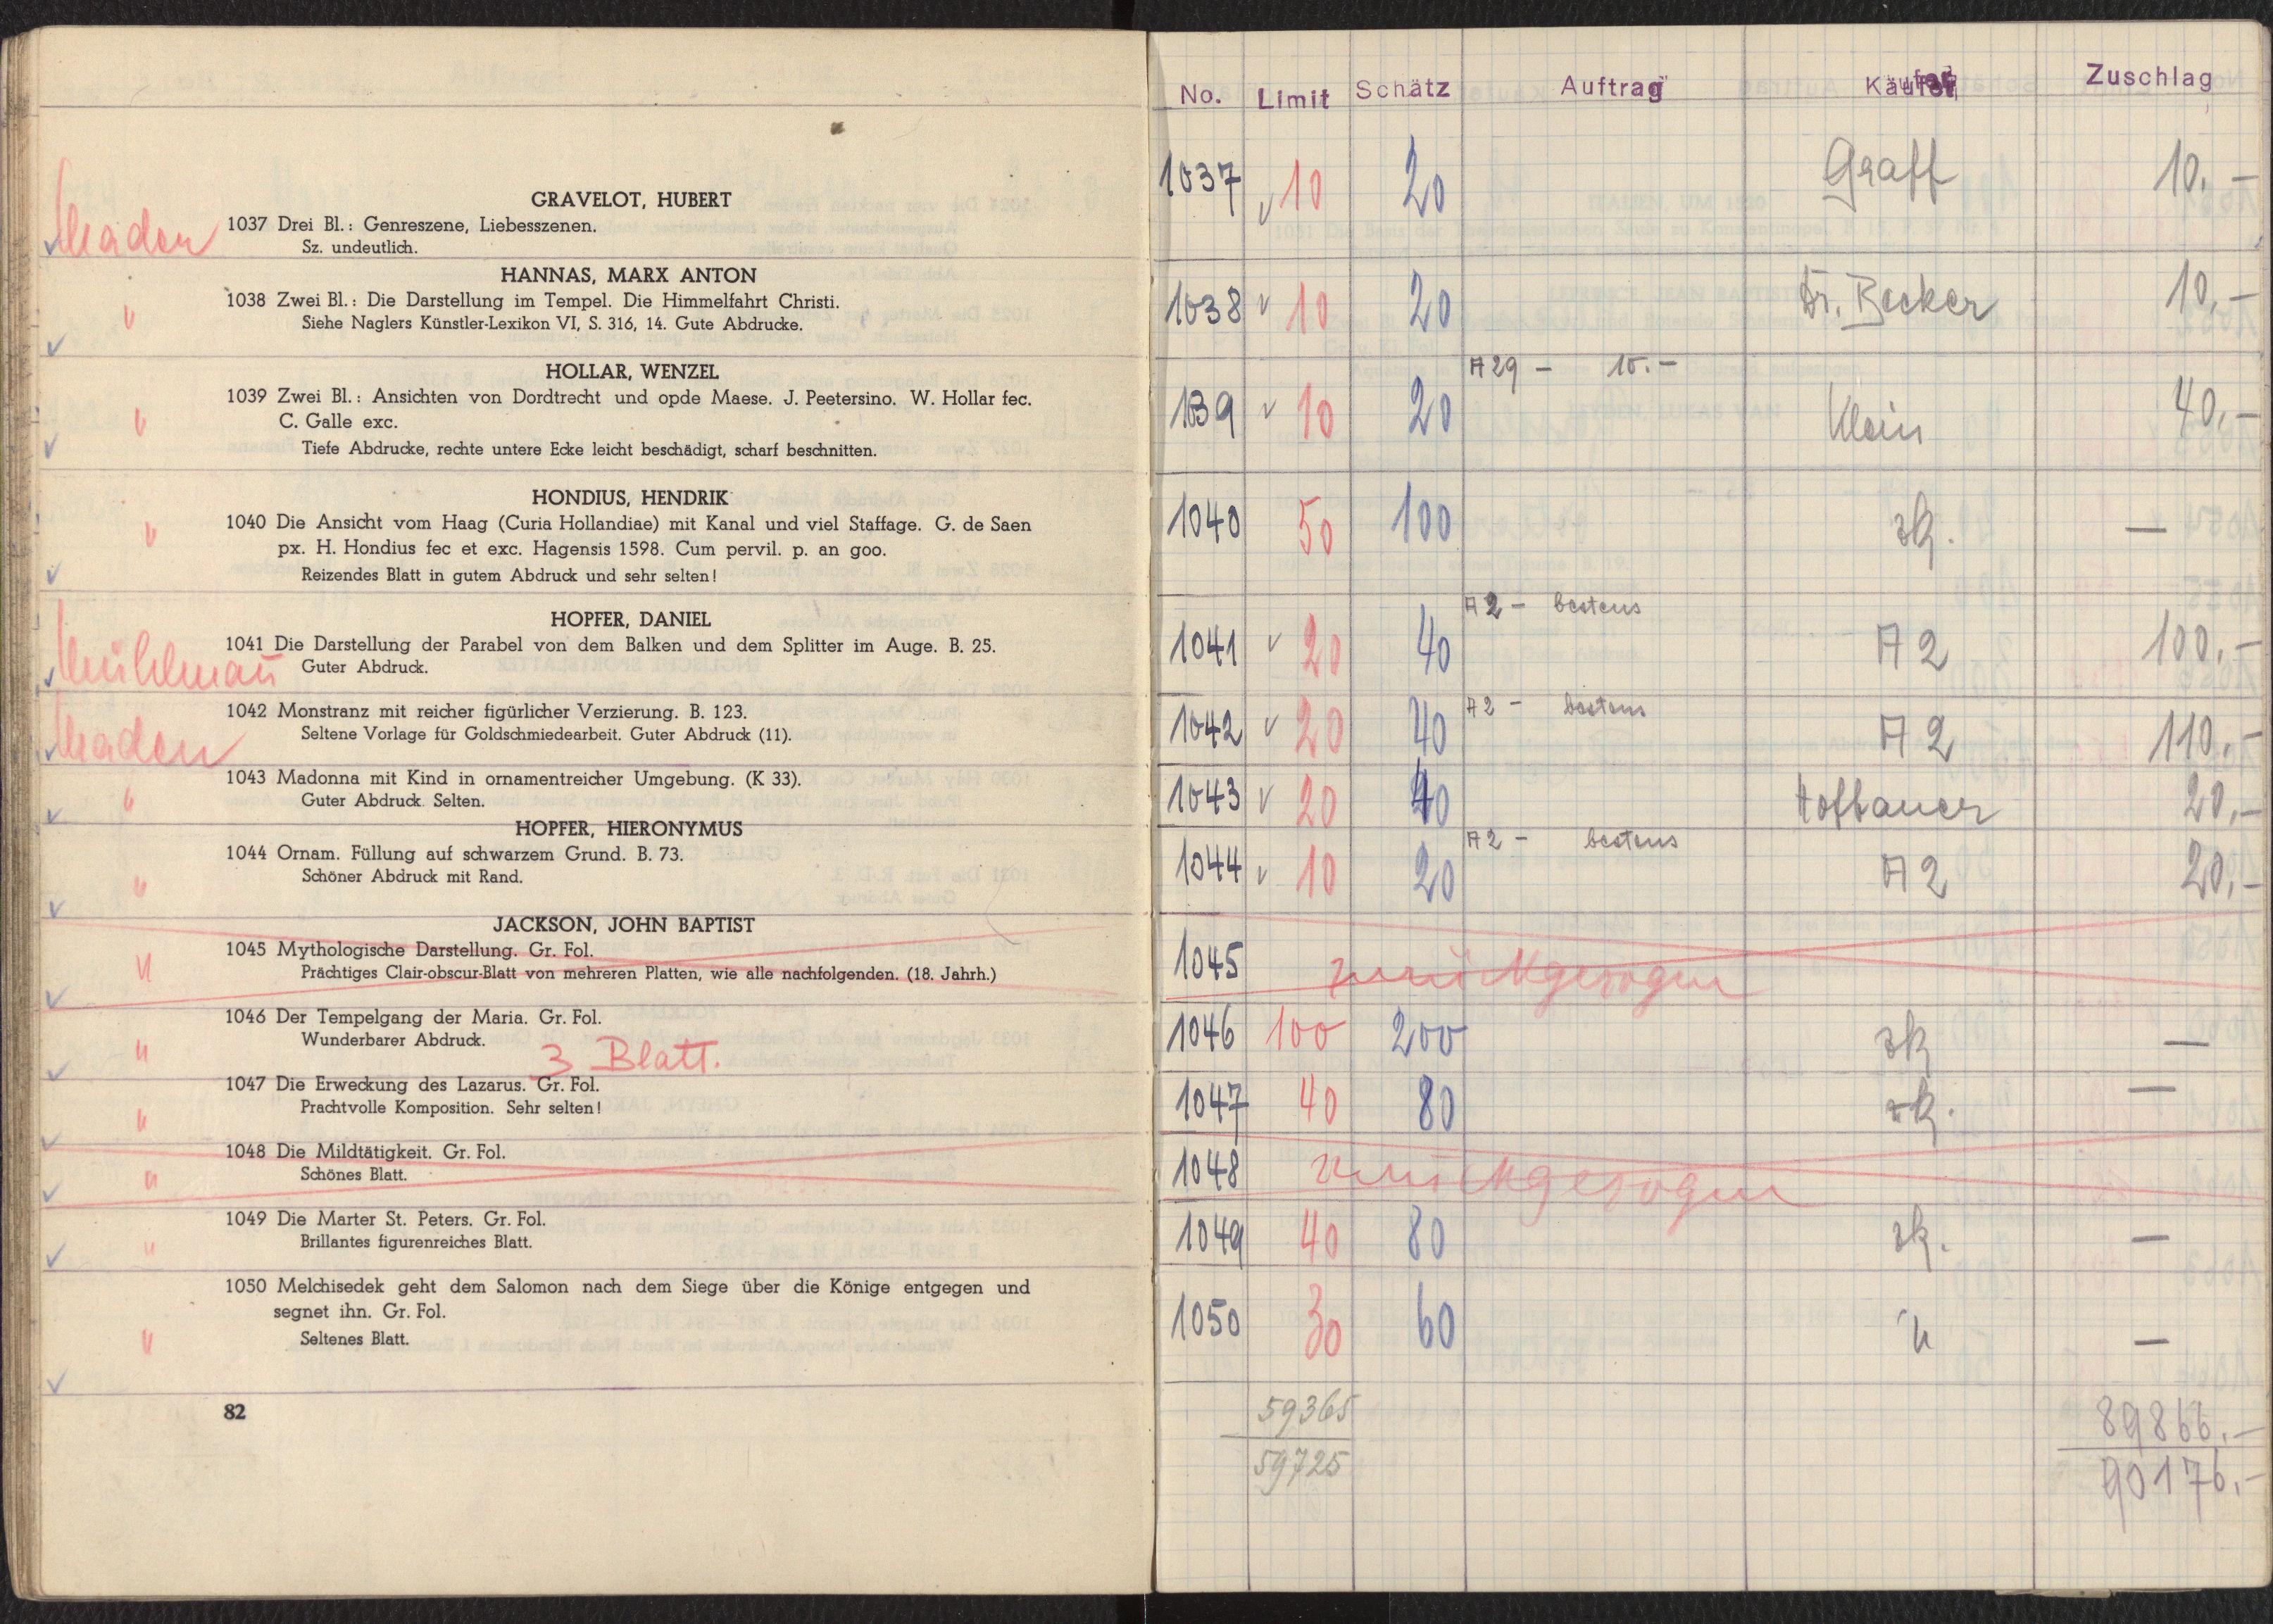 GRAVELOT, HUBERT
1037 Drei Bl.: Genreszene, Liebesszenen.
Sz. undeutlich.
HANNAS, MARX ANTON
" 1038 Zwei Bl.: Die Darstellung im Tempel. Die Himmelfahrt Christi.
Siehe Naglers Künstler-Lexikon VI, S. 316, 14. Gute Abdrucke.
HOLLAR, WENZEL
1039 Zwei Bl.: Ansichten von Dordtrecht und opde Maese. J. Peetersino. W. Hollar fec.
" C. Galle exc.
Tiefe Abdrucke, rechte untere Ecke leicht beschädigt, scharf beschnitten.
HONDIUS, HENDRIK
1040 Die Ansicht vom Haag (Curia Hollandiae) mit Kanal und viel Staffage. G. de Saen
" px. H. Hondius fec et exc. Hagensis 1598. Cum pervil. p. an goo.
Reizendes Blatt in gutem Abdruck und sehr selten!
HOPFER, DANIEL
1041 Die Darstellung der Parabel von dem Balken und dem Splitter im Auge. B. 25.
Guter Abdruck.
1042 Monstranz mit reicher figürlicher Verzierung. B. 123.
Seltene Vorlage für Goldschmiedearbeit. Guter Abdruck (11).
1043 Madonna mit Kind in ornamentreicher Umgebung. (K 33).
" Guter Abdruck. Selten.
HOPFER, HIERONYMUS
1044 Ornam. Füllung auf schwarzem Grund. B. 73.
" Schöner Abdruck mit Rand.
JACKSON, JOHN BAPTIST
1045 Mythologische Darstellung. Gr. Fol.
" Prächtiges Clair-obscur-Blatt von mehreren Platten, wie alle nachfolgenden. (18. Jahrh.)
1046 Der Tempelgang der Maria. Gr. Fol.
" Wunderbarer Abdruck.
3 Blatt.
1047 Die Erweckung des Lazarus. Gr. Fol.
" Prachtvolle Komposition. Sehr selten!
1048 Die Mildtätigkeit. Gr. Fol.
" Schönes Blatt.
1049 Die Marter St. Peters. Gr. Fol.
" Brillantes figurenreiches Blatt.
1050 Melchisedek geht dem Salomon nach dem Siege über die Könige entgegen und
segnet ihn. Gr. Fol.
" Seltenes Blatt.
82
No. Limit Schätz Auftrag Käufer Zuschlag
1037 10 20 Graff 10.-
1038 10 20 Dr. Becker 10,-
A 29 - 10.-
1039 10 20 Klein 40,-
1040 50 100 zk. —
A 2 - bestens
1041 20 40 A 2 100,-
A 2 - bestens
1042 20 40 A 2 110,-
1043 20 40 Hofbauer 20,-
A 2 - bestens
1044 10 20 A 2 20,-
1045 zurückgezogen
1046 100 200 zk —
1047 40 80 zk. —
1048 zurückgezogen
1049 40 80 zk. —
1050 30 60 " —
59365 89866.-
59725 90176.-